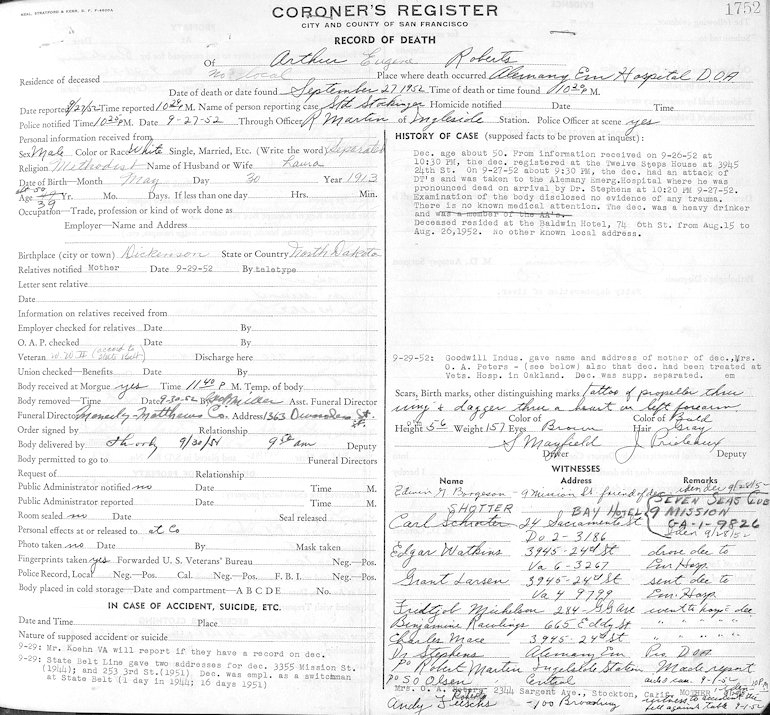 NEAL, STRATFORD & KERR, S. F.
CORONER'S REGISTER
CITY AND COUNTY OF SAN FRANCISCO
1752
RECORD OF DEATH
Of Arthur Eugene Roberts
Residence of deceased no local Place where death occurred Alemany Em Hospital D.O.A
Date of death or date found September 27 1952 Time of death or time found 10 20 P.M.
Date reported 9/27/52 Time reported 10 24 P.M. Name of person reporting case Homicide notified Date Time
Police notified Time 10 23 P.M. Date 9-27-52 Through Officer R Martin of Ingleside Station. Police Officer at scene yes
Personal information received from
Sex Male Color or Race White Single, Married, Etc. (Write the word) Seperated
Religion Methodist Name of Husband or Wife Laura
Date of Birth—Month May Day 30 Year 1913
Age 39 Yr. Mo. Days. If less than one day Hrs. Min.
Occupation—Trade, profession or kind of work done as
Employer—Name and Address
Birthplace (city or town) Dickinson State or Country North Dakota
Relatives notified Mother Date 9-29-52 By teletype
Letter sent relative
Date
Information on relatives received from
Employer checked for relatives Date By
O. A. P. checked Date By
Veteran W.W. II (accord to State Belt) Discharge here
Union checked—Benefits Date By
Body received at Morgue yes Time 11 40 P M. Temp. of body
Body removed—Time Date 9-30-52 By Miller Asst. Funeral Director
Funeral Director Matthews Co. Address 1363 Divisadero St.
Order signed by Relationship
Body delivered by 9/30/52 9 15 am Deputy
Body permitted to go Funeral Directors
Request of Relationship
Public Administrator notified no Date Time M.
Public Administrator reported Date Time M.
Room sealed no Date Seal released
Personal effects at or released to at Co
Photo taken no Date By Mask taken
Fingerprints taken yes Forwarded U. S. Veterans' Bureau Neg.—Pos.
Police Record, Local Neg.—Pos. Cal. Neg.—Pos. F. B. I. Neg.—Pos.
Body placed in cold storage—Date and compartment—A B C D E No.
IN CASE OF ACCIDENT, SUICIDE, ETC.
Date and Time Place
Nature of supposed accident or suicide
9-29: Mr. Koehn VA will report if they have a record on dec.
9-29: State Belt Line gave two addresses for dec. 3355 Mission St.
(1944); and 253 3rd St.(1951) Dec. was empl. as a switchman
at State Belt (1 day in 1944; 16 days 1951)
HISTORY OF CASE (supposed facts to be proven at inquest):
Dec. age about 50. From information received on 9-26-52 at
10:30 PM, the dec. registered at the Twelve Steps House at 3945
24th St. On 9-27-52 about 9:30 PM, the dec. had an attack of
DT's and was taken to the Alemany Emerg.Hospital where he was
pronounced dead on arrival by Dr. Stephens at 10:20 PM 9-27-52.
Examination of the body disclosed no evidence of any trauma.
There is no known medical attention. The dec. was a heavy drinker
and was a member of the AA's.
Deceased resided at the Baldwin Hotel, 74 6th St. from Aug.15 to
Aug. 26,1952. No other known local address.
9-29-52: Goodwill Indus. gave name and address of mother of dec.,Mrs.
O. A. Peters - (see below) also that dec. had been treated at
Vets. Hosp. in Oakland. Dec. was supp. separated. em
Scars, Birth marks, other distinguishing marks tattoo of propeller thru
wing & dagger thru a heart on left forearm
Height 5-6 Weight 157 Color of Eyes Brown Color of Hair Bald Gray
S Mayfield J. Prideaux
Driver Deputy
WITNESSES
Name Address Remarks
Edwin M Borgeson - 9 Mission St friend of dec - seen dec 9/28/52
SHOTTER BAY HOTEL
SEVEN SEAS CLUB
9 MISSION
GA-1-9826
Carl Schroter 24 Sacramento St
Do 2-3186 Seen 9/28/52
Edgar Watkins 3945-24th St drove dec to
Va 6-3267 Em Hosp.
Grant Larsen 3945-24th St sent dec to
Va 4 9799 Em Hosp
Michelson 284-GG Ave went to hosp c dec
Benjamine Rawlings 665 Eddy St " " " "
Charles Mace 3945-24th St " " " "
Dr Stephens Alemany Em Pro DOA
Po Robert Martin Ingleside Station Made report
Po S O Olsen Central
Mrs. O. A. Peters, 2344 Sargent Ave., Stockton, Calif. MOTHER
Andy -100 Broadway witness to accident
fell against table 9-1-52